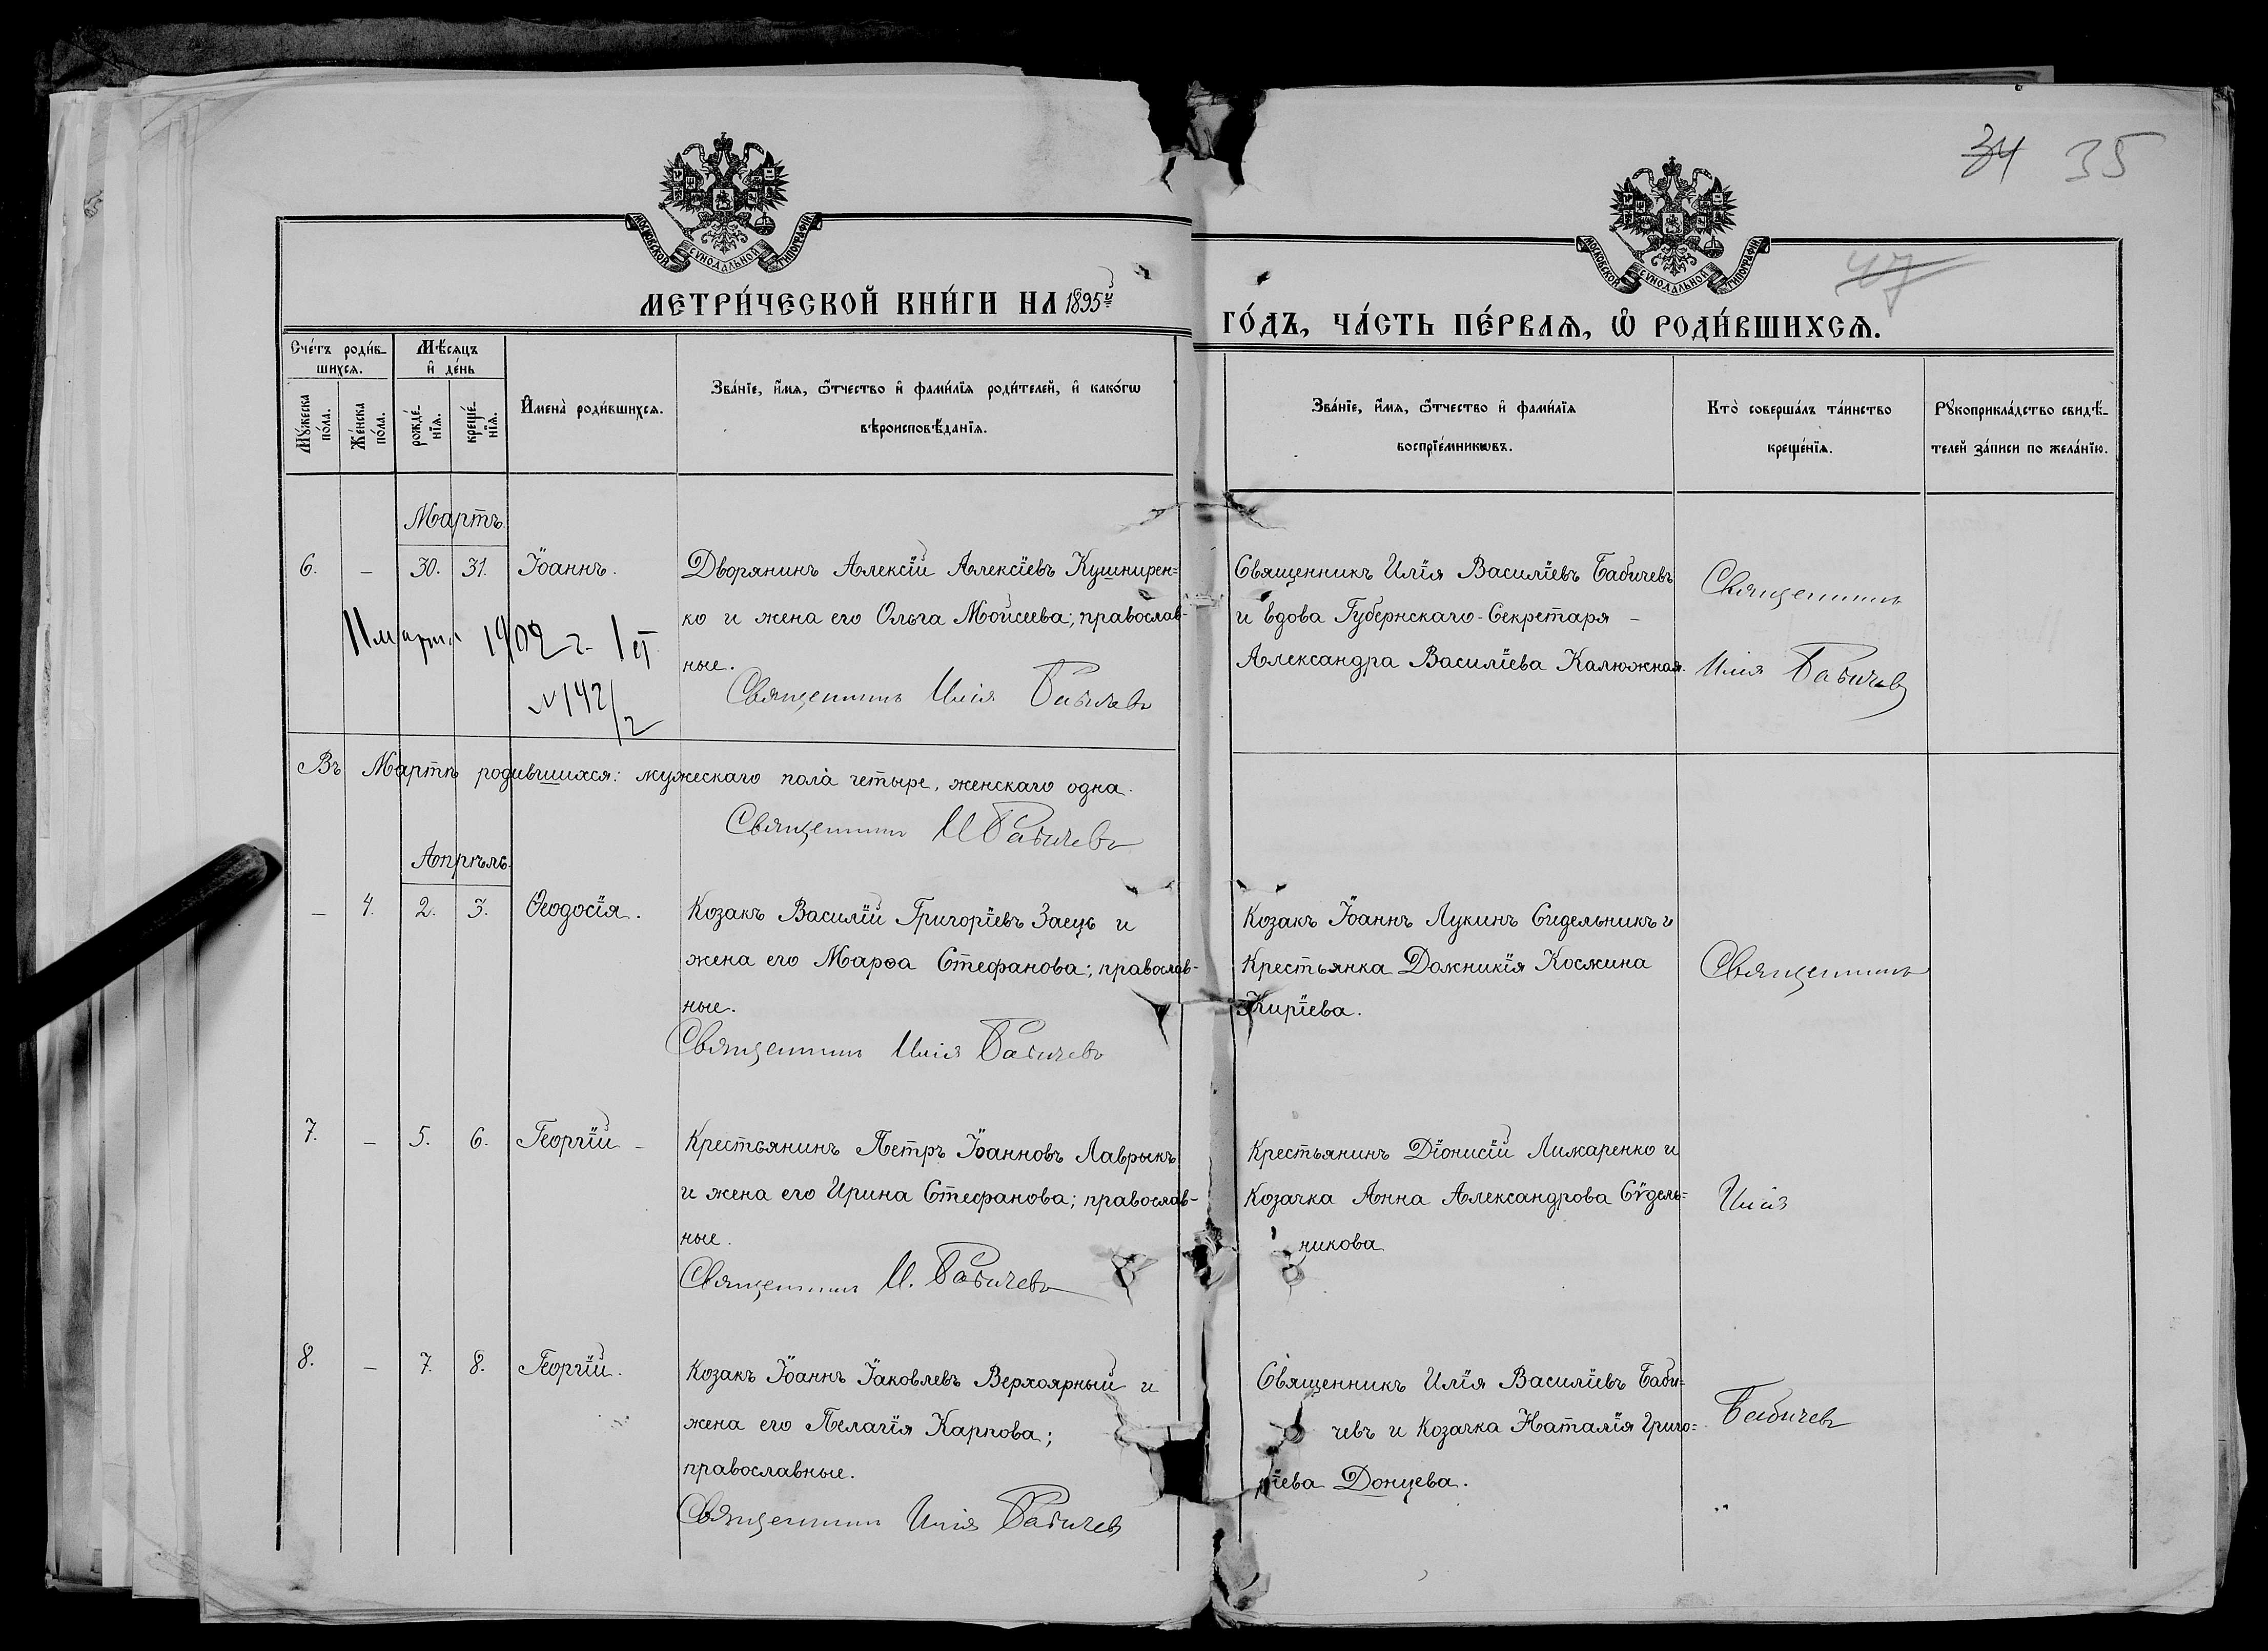 34 35
МОСКОВСКОЙ СѴНОДАЛЬНОЙ ТИПОГРАФІИ
МОСКОВСКОЙ СѴНОДАЛЬНОЙ ТИПОГРАФІИ
47
МЕТРИ́ЧЕСКОЙ КНИ́ГИ НА 1895й
ГО́ДЪ, ЧА́СТЬ ПЕ́РВАЯ, Ѽ РОДИ́ВШИХСѦ.
Сче́тъ роди́в-
шихсѧ.
Мꙋ́жеска
по́ла.
Же́нска
по́ла.
Мѣ́сѧцъ
и҆ де́нь
рожде́-
нїѧ.
креще́-
нїѧ.
И҆мена̀ роди́вшихсѧ.
Зва́нїе, и҆́мѧ, ѻ҆́тчество и҆ фами́лїѧ роди́телей, и҆ како́гѡ
вѣроисповѣ́данїѧ.
Зва́нїе, и҆́мѧ, ѻ҆́тчество и҆ фами́лїѧ
воспрїе́мникѡвъ.
Кто̀ соверша́лъ та́инство
креще́нїѧ.
Рꙋкоприкла́дство свидѣ́-
телей за́писи по жела́нїю.
Мартъ
6. – 30. 31. Іоаннъ.
Дворянинъ Алексій Алексіевъ Кушнирен=
ко и жена его Ольга Моисеева; православ-
ные.
Священникъ Илія Бабичевъ
Священникъ Илія Василіевъ Бабичевъ
и вдова Губернскаго-Секретаря –
Александра Василіева Калюжная.
Священникъ
Илія Бабичевъ
11 марта 1902 г.
№ 142/2
Въ Мартѣ родившихся: мужескаго пола четыре, женскаго одна.
Священникъ И Бабичевъ
Апрѣль.
– 4. 2. 3. Ѳеодосія.
Козакъ Василій Григоріевъ Заецъ и
жена его Марѳа Стефанова; православ-
ные.
Священникъ Илія Бабичевъ
Козакъ Іоаннъ Лукинъ Сидельникъ и
Крестьянка Домникія Космина
Киріева.
Священникъ
7. – 5. 6. Георгій –
Крестьянинъ Петръ Іоанновъ Лаврыкъ
и жена его Ирина Стефанова; православ-
ные.
Священникъ И. Бабичевъ
Крестьянинъ Діонисій Лимаренко и
Козачка Анна Александрова Сѵдель=
никова
Илія
8. – 7. 8. Георгій.
Козакъ Іоаннъ Іаковлевъ Верхоярный и
жена его Пелагія Карпова;
православные.
Священникъ Илія Бабичевъ
Священникъ Илія Василіевъ Баби=
чевъ и Козачка Наталія Григо=
ріева Донцева.
Бабичевъ